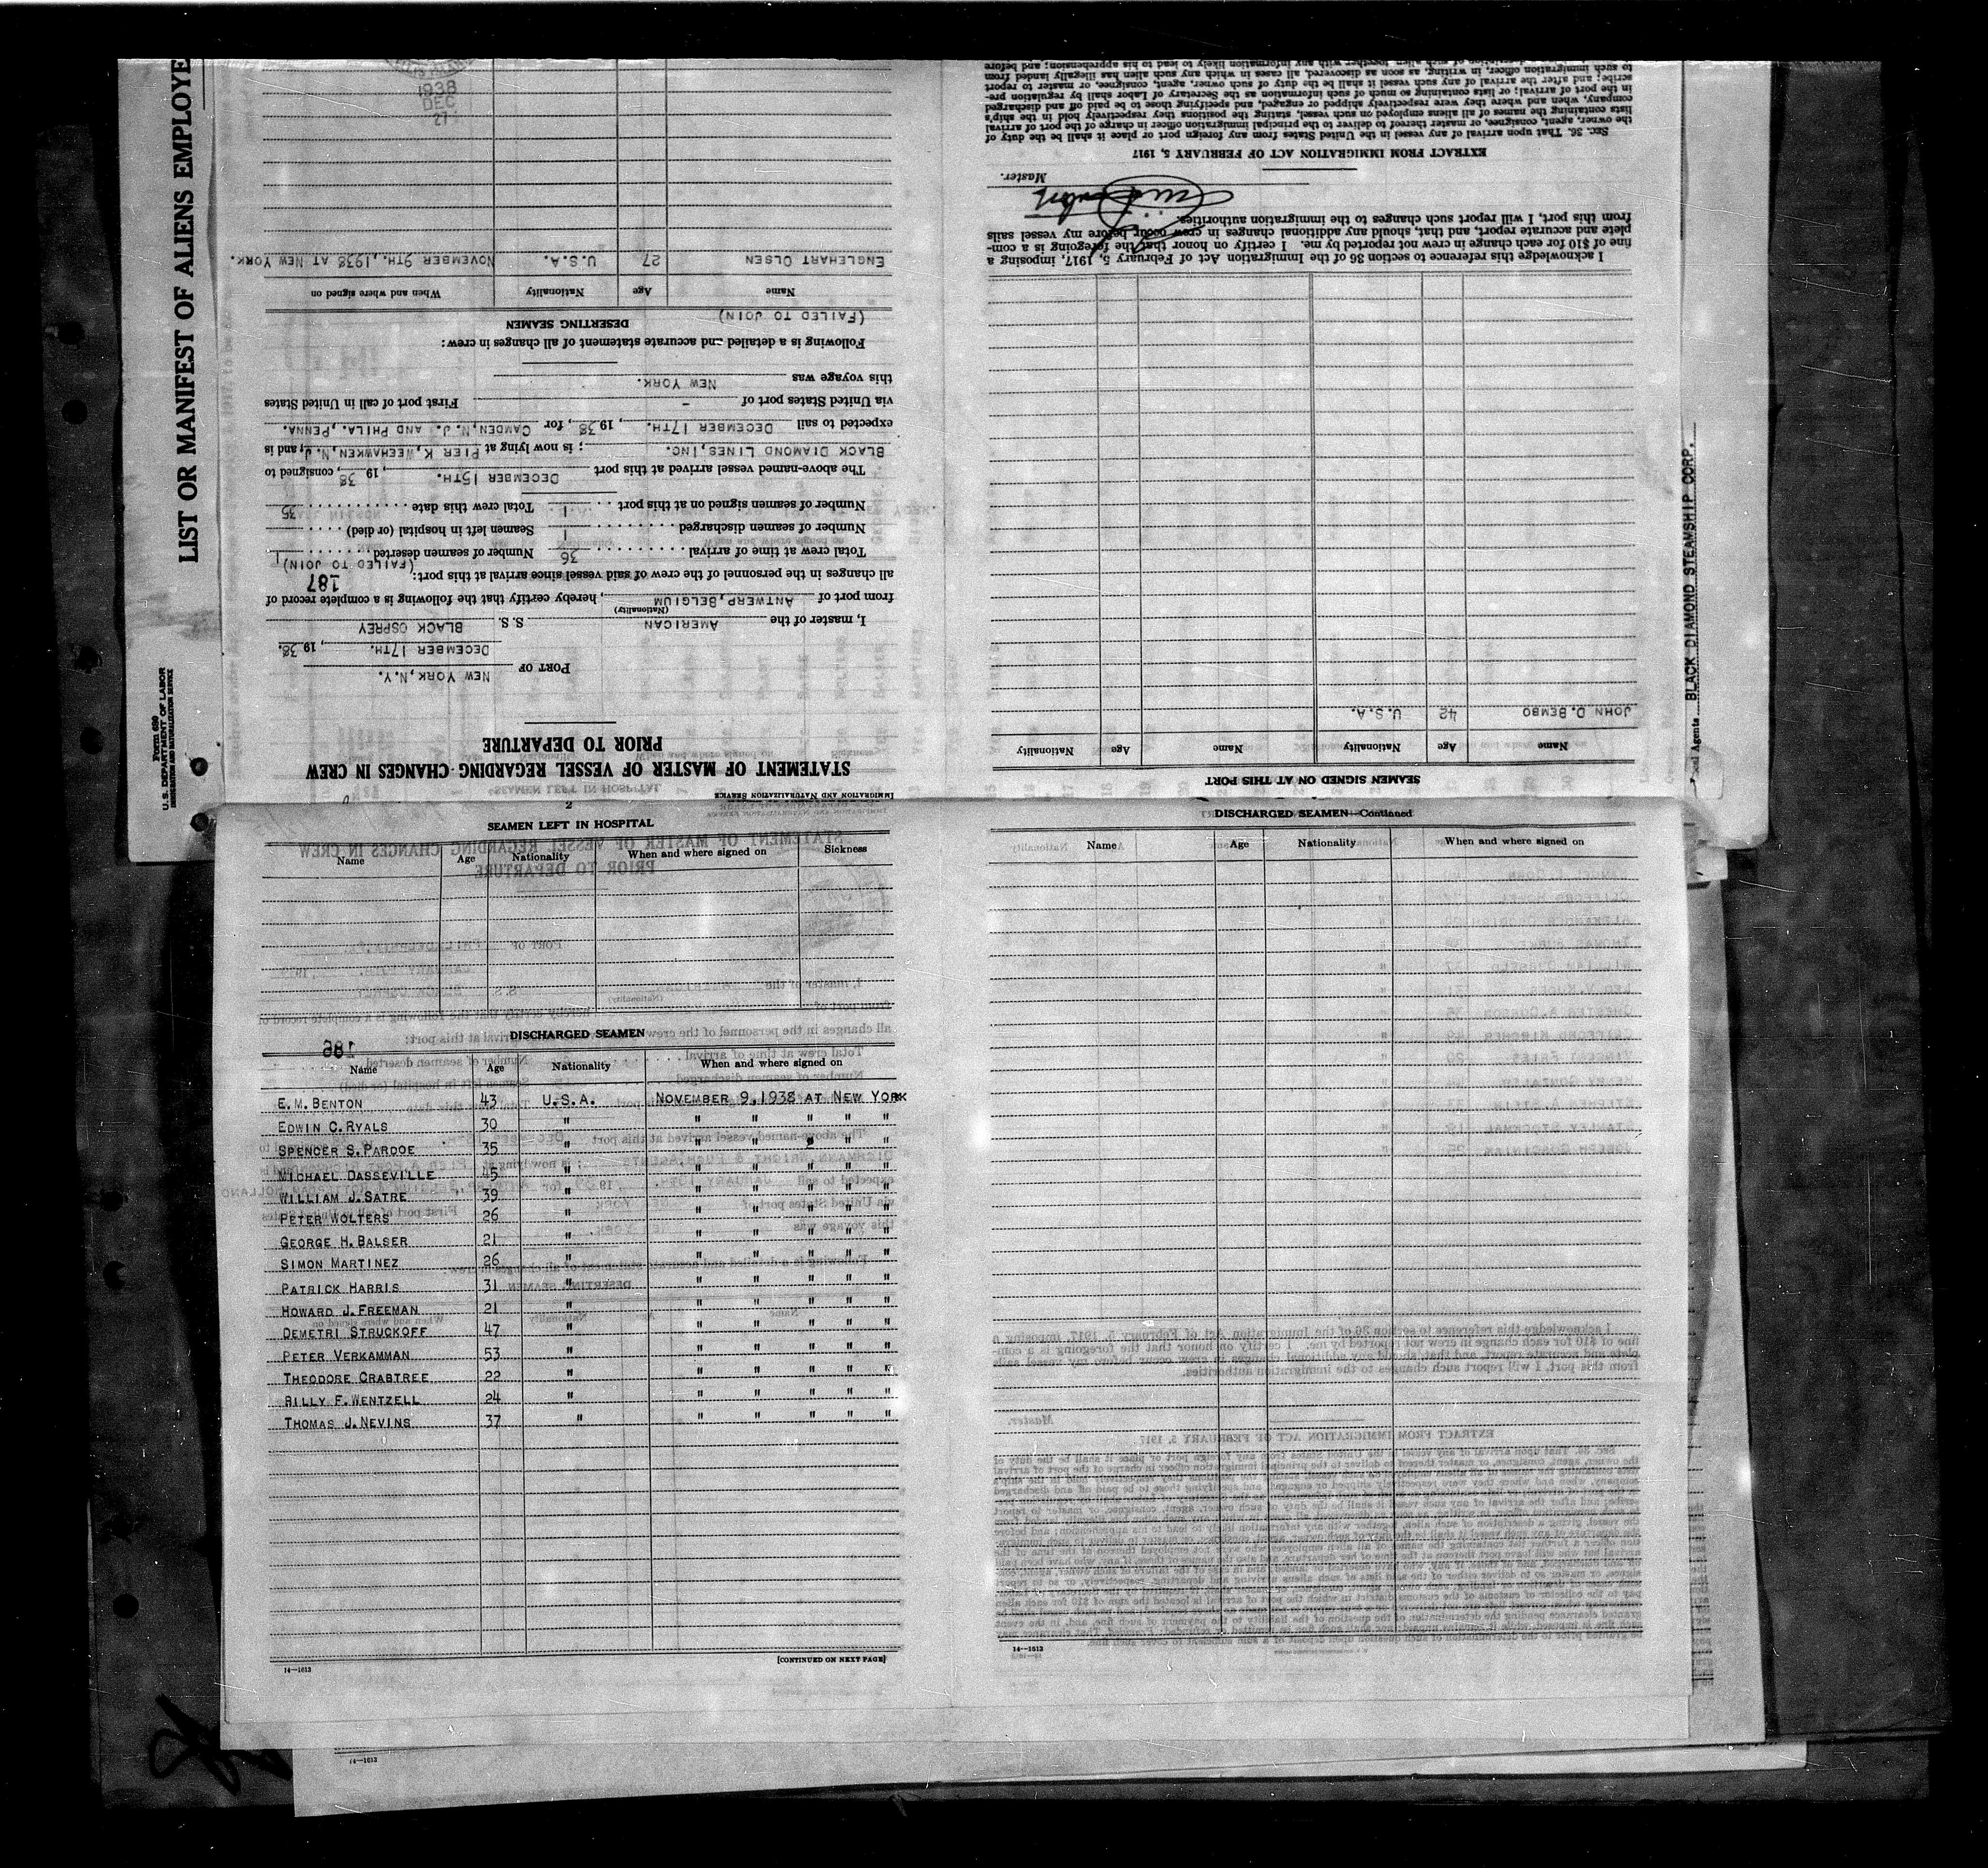 LIST OR MANIFEST OF ALIENS EMPLOYE
Form 680
U.S. DEPARTMENT OF LABOR
IMMIGRATION AND NATURALIZATION SERVICE
BLACK DIAMOND STEAMSHIP CORP.
Agents
IMMIGRATION AND NATURALIZATION SERVICE
STATEMENT OF MASTER OF VESSEL REGARDING CHANGES IN CREW
PRIOR TO DEPARTURE
PORT OF NEW YORK, N.Y.
DECEMBER 17TH. , 1938.
I, master of the AMERICAN S.S. BLACK OSPREY
(Nationality)
from port of ANTWERP, BELGIUM , hereby certify that the following is a complete record of
all changes in the personnel of the crew of said vessel since arrival at this port: 187
(FAILED TO JOIN)
Total crew at time of arrival 36 Number of seamen deserted 1
Number of seamen discharged 1 Seamen left in hospital (or died)
Number of seamen signed on at this port 1 Total crew this date 35
The above-named vessel arrived at this port DECEMBER 15TH. , 1938, consigned to
BLACK DIAMOND LINES, INC. ; is now lying at PIER K, WEEHAWKEN, N.J., and is
expected to sail DECEMBER 17TH. , 1938, for CAMDEN, N.J. AND PHILA., PENNA.
via United States port of - First port of call in United States
this voyage was NEW YORK.
Following is a detailed and accurate statement of all changes in crew:
DESERTING SEAMEN
(FAILED TO JOIN)
Name Age Nationality When and where signed on
ENGLEHART OLSEN 27 U.S.A. NOVEMBER 9TH., 1938 AT NEW YORK.
1938
DEC
27
SEAMEN SIGNED ON AT THIS PORT
Name Age Nationality Name Age Nationality
JOHN D. BEMBO 42 U.S.A.
I acknowledge this reference to section 36 of the Immigration Act of February 5, 1917, imposing a
fine of $10 for each change in crew not reported by me. I certify on honor that the foregoing is a com-
plete and accurate report, and that, should any additional changes in crew occur before my vessel sails
from this port, I will report such changes to the immigration authorities.
Master.
EXTRACT FROM IMMIGRATION ACT OF FEBRUARY 5, 1917
SEC. 36. That upon arrival of any vessel in the United States from any foreign port or place it shall be the duty of
the owner, agent, consignee, or master thereof to deliver to the principal immigration officer in charge of the port of arrival
lists containing the names of all aliens employed on such vessel, stating the positions they respectively hold in the ship's
company, when and where they were respectively shipped or engaged, and specifying those to be paid off and discharged
in the port of arrival; or lists containing so much of such information as the Secretary of Labor shall by regulation pre-
scribe; and after the arrival of any such vessel it shall be the duty of such owner, agent, consignee, or master to report
to such immigration officer, in writing, as soon as discovered, all cases in which any such alien has illegally landed from
description of such alien, together with any information likely to lead to his apprehension; and before
2
SEAMEN LEFT IN HOSPITAL
Name Age Nationality When and where signed on Sickness
DISCHARGED SEAMEN
186
Name Age Nationality When and where signed on
E.M. BENTON 43 U.S.A. NOVEMBER 9, 1938 AT NEW YORK
EDWIN C. RYALS 30 " " " " " "
SPENCER S. PARDOE 35 " " " " " "
MICHAEL DASSEVILLE 45 " " " " " "
WILLIAM J. SATRE 39 " " " " " "
PETER WOLTERS 26 " " " " " "
GEORGE H. BALSER 21 " " " " " "
SIMON MARTINEZ 26 " " " " " "
PATRICK HARRIS 31 " " " " " "
HOWARD J. FREEMAN 21 " " " " " "
DEMETRI STRUCKOFF 47 " " " " " "
PETER VERKAMMAN 53 " " " " " "
THEODORE CRABTREE 22 " " " " " "
BILLY F. WENTZELL 24 " " " " " "
THOMAS J. NEVINS 37 " " " " " "
14—1613 [CONTINUED ON NEXT PAGE]
DISCHARGED SEAMEN—Continued
Name Age Nationality When and where signed on
14—1613
14—1613